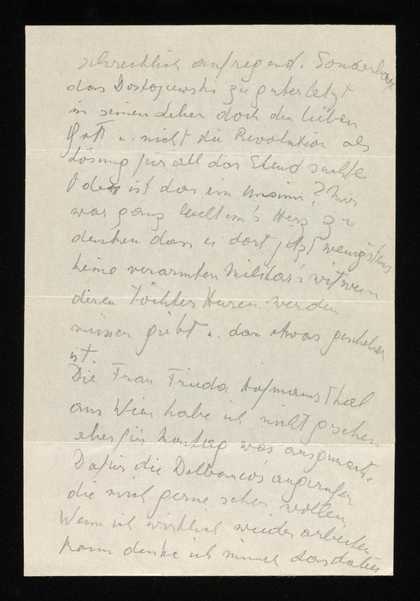 schrecklich aufregend. Sonderbar
das Dostojewski zu guterletzt
in seinen doch den lieben
Gott u. nicht die Revolution als
Lösung für all das Elend suchte
Oder ist das ein Unsinn? Mir
war ganz leicht um's Herz zu
denken dass es dort jetzt wenigstens
keine verarmten Militärswitwen
deren Töchter Huren werden
müssen giebt u. dan etwas geschehen
ist.
Die Frau Frieda Hofmannsthal
aus Wien habe ich nicht gesehen
aber für Montag was ausgemacht.
Dafür die angerufen
die mich gerne sehen wollen,
Wenn ich wirklich wieder arbeiten
kann denke ich immer